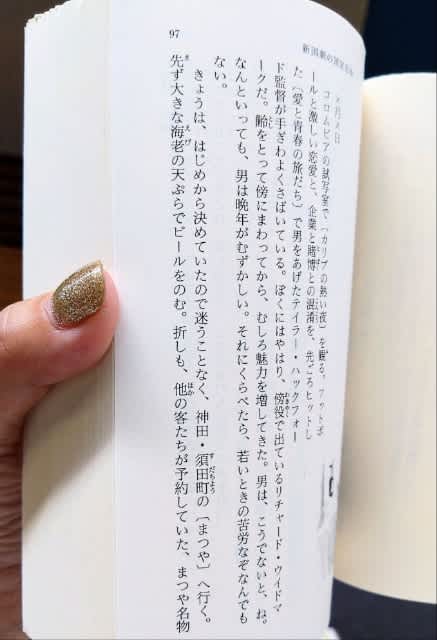 97
新国劇の
×月×日
コロムビアの試写室で〔カリブの熱い夜〕を観る。フットボ
ールと激しい恋愛と、企業と賭博との混淆を、先ごろヒットし
た〔愛と青春の旅だち〕で男をあげたテイラー・ハックフォー
ド監督が手ぎわよくさばいている。ぼくにはやはり、傍役で出ているリチャード・ウイドマ
ークだ。齢をとって傍にまわってから、むしろ魅力を増してきた。男は、こうでないと、ね。
なんといっても、男は晩年がむずかしい。それにくらべたら、若いときの苦労なぞなんでも
ない。
きょうは、はじめから決めていたので迷うことなく、神田・須田町の〔まつや〕へ行く。
先ず大きな海老の天ぷらでビールをのむ。折しも、他の客たちが予約していた、まつや名物